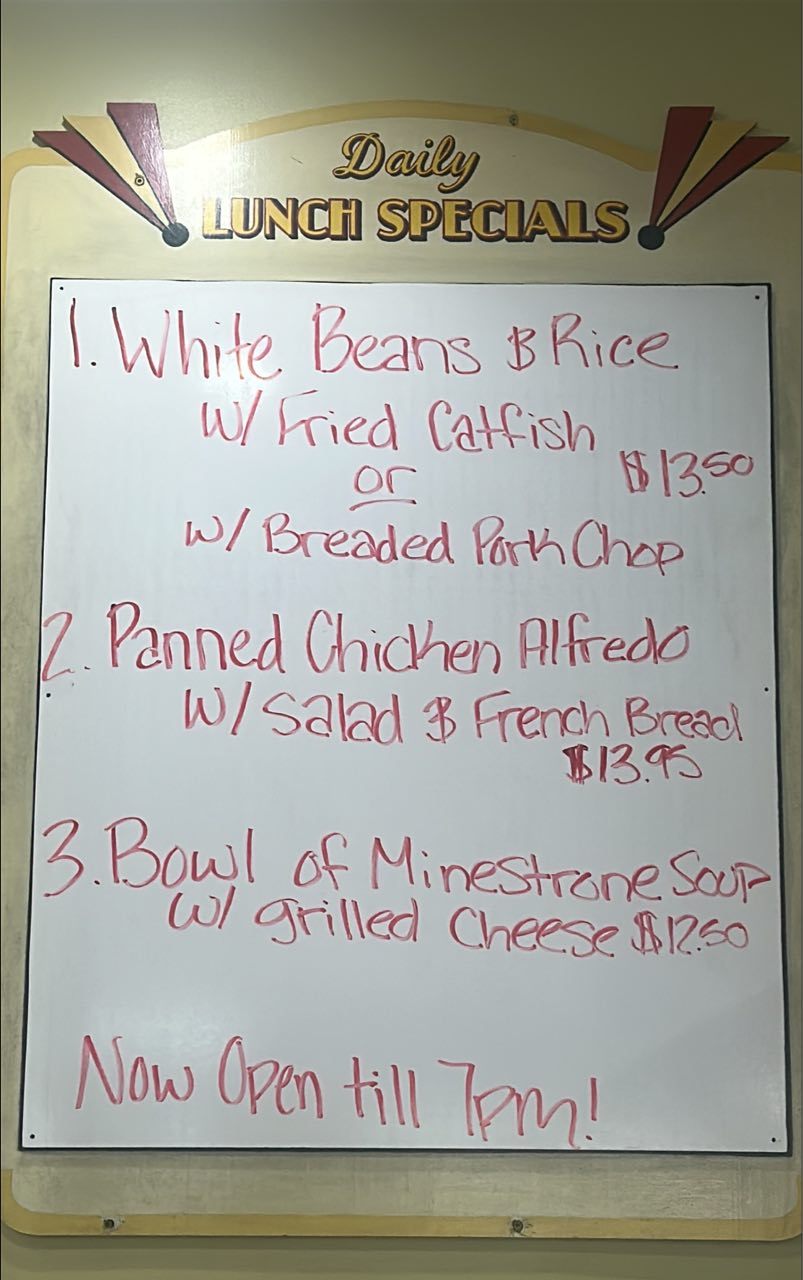 Daily
LUNCH SPECIALS
1. White Beans & Rice
w/ Fried Catfish
$13.50
or
w/ Breaded Pork Chop
2. Panned Chicken Alfredo
w/ Salad & French Bread
$13.95
3. Bowl of Minestrone Soup
w/ grilled Cheese $12.50
Now Open till 7pm!